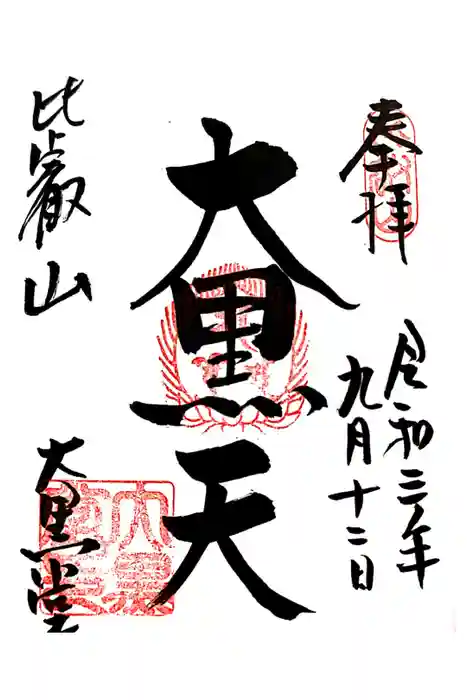 奉拝
令和三年
九月十二日
大黒天
比叡山
大黒堂